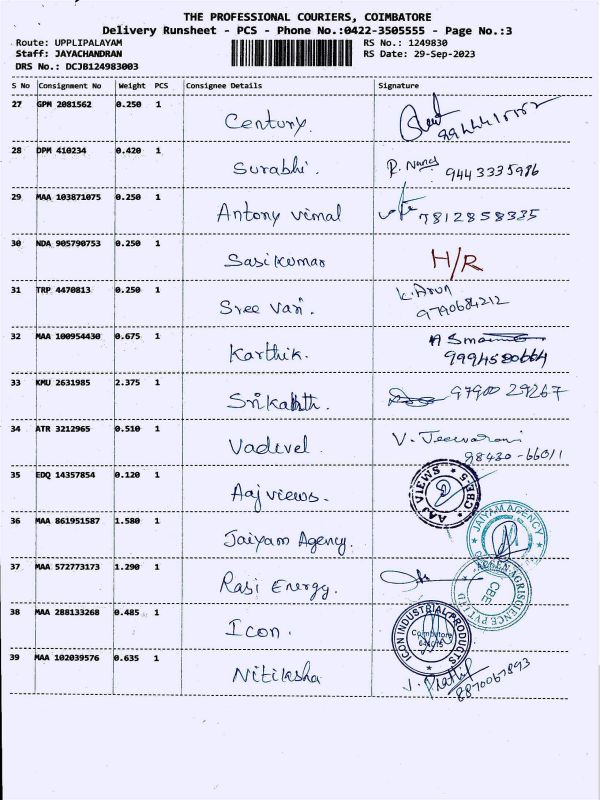 THE PROFESSIONAL COURIERS, COIMBATORE
Delivery Runsheet - PCS - Phone No.:0422-3505555 - Page No.:3
Route: UPPLIPALAYAM RS No.: 1249830
Staff: JAYACHANDRAN RS Date: 29-Sep-2023
DRS No.: DCJB124983003
S No Consignment No Weight PCS Consignee Details Signature
27 GPM 2081562 0.250 1 Century.
28 DPM 410234 0.420 1 Surabhi. 9443335986
29 MAA 103871075 0.250 1 Antony vimal 7812858335
30 NDA 905790753 0.250 1 Sasikumar H/R
31 TRP 4470813 0.250 1 Sree vari. K. Arun
9790684212
32 MAA 100954430 0.675 1 Karthik.
9994580664
33 KMU 2631985 2.375 1 Srikanth. 97900 29267
34 ATR 3212965 0.510 1 Vadivel. V. Jeevarani
98430-66011
35 EDQ 14357854 0.120 1 Aaj views. AAJ VIEWS CBE-5
36 MAA 861951587 1.580 1 Jaiyam Agency. JAIYAM AGENCY
37 MAA 572773173 1.290 1 Rasi Energy. AGRISCIENCE PVT LTD CBE
38 MAA 288133268 0.485 1 Icon. ICON INDUSTRIAL PRODUCTS Coimbatore
39 MAA 102039576 0.635 1 Nitiksha J. Prathip
8870067893